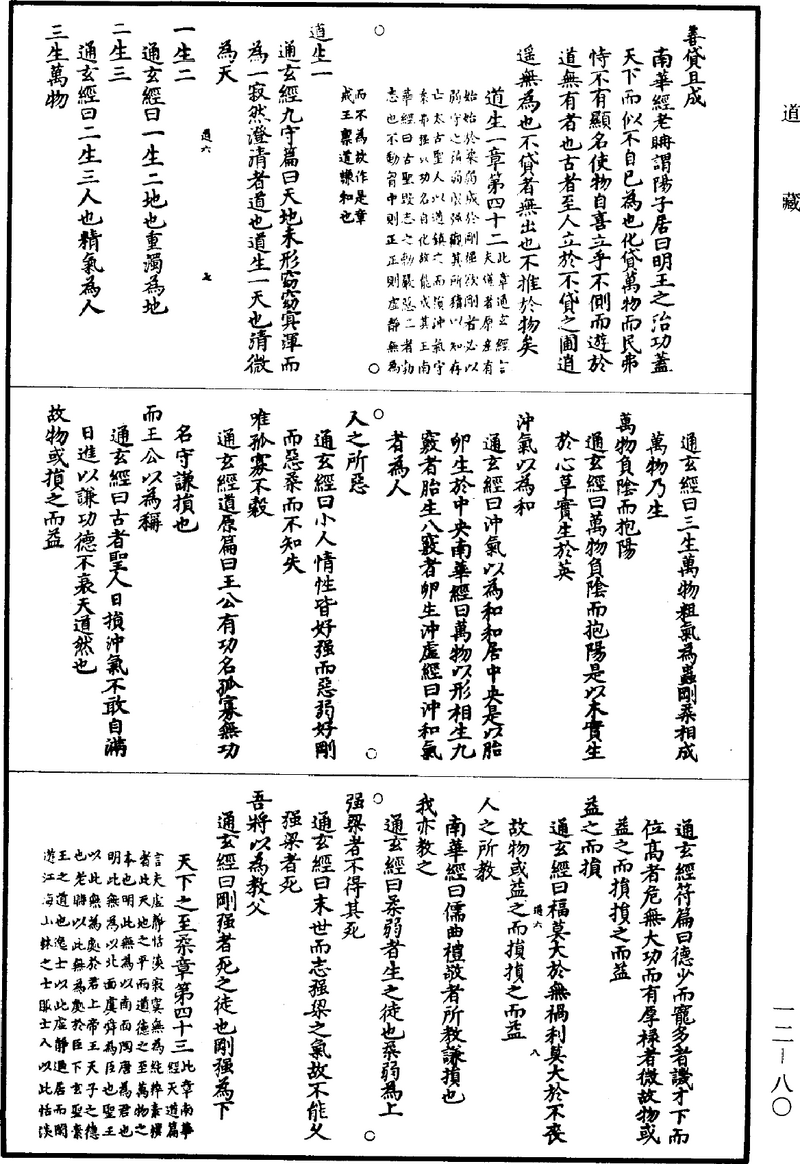 善貸且成
南華經老聃謂陽子居曰明王之治功蓋
天下而似不自已為也化貸萬物而民弗
恃不有顯名使物自喜立乎不側而遊於
道無有者也古者至人立於不貸之圃逍
遥無為也不貸者無出也不推於物矣
道生一章第四十二此章通玄經言
夫道者原産有
始始於柔弱成於剛强欲剛者必以
弱守之積弱成强觀其所積以知存
亡太古聖人以道鎮之而須沖氣守
柔弗强以功名自化故能成其王南
華經曰古聖毀志之勃嚴惡二者勃
志也不動胷中則正正則虚靜無為
而不為故作是章
戒王禀道謙和也
道生一
通玄經九守篇曰天地未形窈窈冥渾而
為一寂然澄清者道也道生一天也清微
為天
道六 七
一生二
通玄經曰一生二地也重濁為地
二生三
通玄經曰二生三人也精氣為人
三生萬物
通玄經曰三生萬物粗氣為蟲剛柔相成
萬物乃生
萬物負陰而抱陽
通玄經曰萬物負陰而抱陽是以木實生
於心草實生於英
沖氣以為和
通玄經曰沖氣以為和和居中央是以胎
卵生於中央南華經曰萬物以形相生九
竅者胎生八竅者卵生沖虚經曰沖和氣
者為人
人之所惡
通玄經曰小人情性皆好强而惡弱好剛
而惡柔而不知失
唯孤寡不穀
通玄經道原篇曰王公有功名孤寡無功
名守謙損也
而王公以為稱
通玄經曰古者聖人日損沖氣不敢自滿
日進以謙功德不衰天道然也
故物或損之而益
通玄經符篇曰德少而寵多者譏才下而
位髙者危無大功而有厚禄者微故物或
益之而損損之而益
益之而損
通玄經曰福莫大於無禍利莫大於不喪
道六 八
故物或益之而損損之而益
人之所教
南華經曰儒曲禮敬者所教謙損也
我亦教之
通玄經曰柔弱者生之徒也柔弱為上
强梁者不得其死
通玄經曰末世而志强梁之氣故不能父
强梁者死
吾將以為教父
通玄經曰剛强者死之徒也剛强為下
天下之至柔章第四十三此章南華
經天道篇
言夫虚靜恬淡寂寞無為純粹素樸
者此天地之平而道德之至萬物之
本也明此無為以南面陶唐為君也
明此無為以北面虞舜為臣也聖王
以此無為處於君上帝王天子之德
也老聃以此無為處於臣下玄聖素
王之道也逸士以此虚靜退居而閑
遊江海山林之士賑士入以此恬淡
道藏
一二—八〇